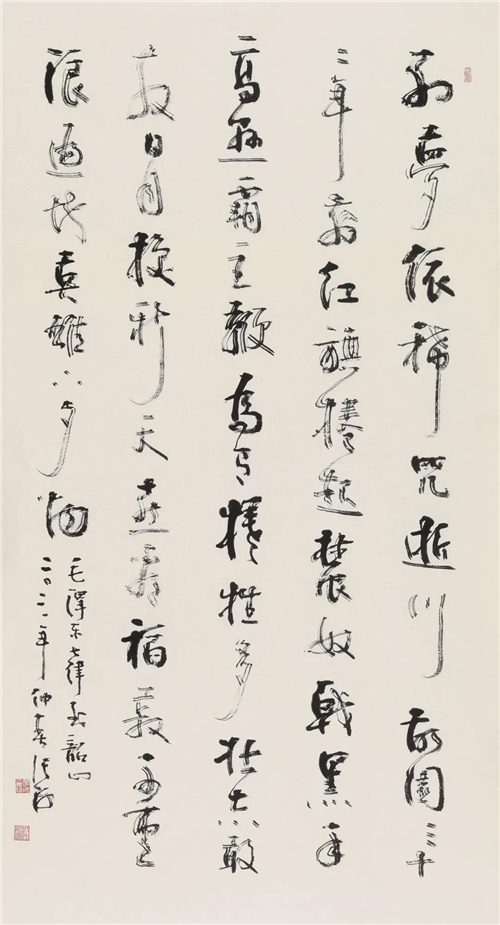 别夢依稀咒逝川故園三十
二年前红旗捲起農奴戟黑手
高悬霸主鞭為有犧牲多壮志敢
教日月換新天喜看稻菽千重
浪遍地英雄下夕烟
毛澤东七律到韶山
二〇二一年仲春